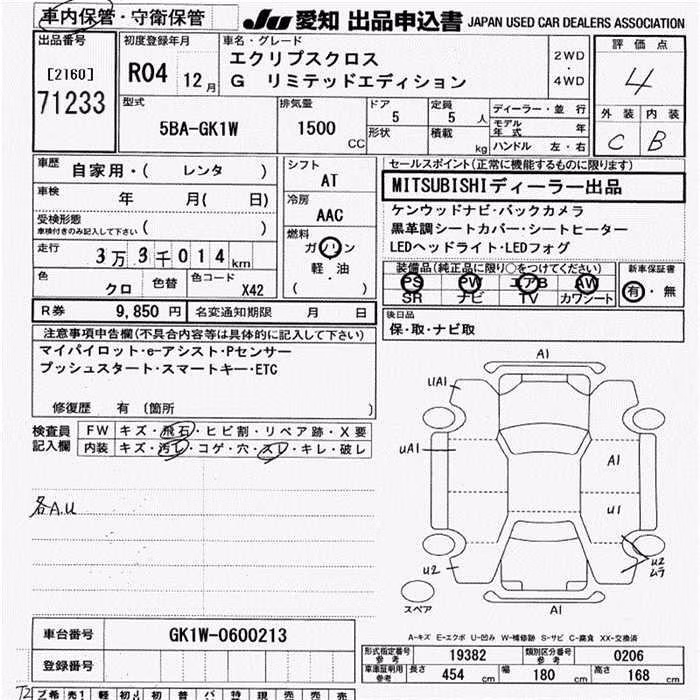 車内保管・守衛保管
JU 愛知 出品申込書 JAPAN USED CAR DEALERS ASSOCIATION
出品番号
[2160]
71233
初度登録年月
R04 12月
車名・グレード
エクリプスクロス
G リミテッドエディション
2WD
・
4WD
評価点
4
外装 内装
C B
型式
5BA-GK1W
排気量
1500 CC
ドア
5
定員
5人
形状
積載
kg
ディーラー・並行
モデル年式 年
ハンドル 左・右
車歴 自家用・( レンタ )
車検 年 月( 日)
受検形態
車検付きのみ記入して下さい ( )
走行 3万3千014km
色 クロ 色替 色コード X42
R券 9,850円 名変通知期限 月 日
シフト
AT
冷房
AAC
燃料
ガソリン
軽・油
( )
セールスポイント(正常に機能するものに限ります)
MITSUBISHIディーラー出品
ケンウッドナビ・バックカメラ
黒革調シートカバー・シートヒーター
LEDヘッドライト・LEDフォグ
装備品(純正品に限り○をつけてください)
PS PW エアB AW
SR ナビ TV カワシート
新車保証書
有・無
後日品
保・取・ナビ取
注意事項申告欄(不具合内容等は具体的に記入して下さい)
マイパイロット・e-アシスト・Pセンサー
プッシュスタート・スマートキー・ETC
修復歴 有 〔箇所 〕
検査員
記入欄
FW キズ・飛石・ヒビ割・リペア跡・X要
内装 キズ・汚レ・コゲ・穴・スレ・キレ・破レ
各A.U
A1
UA1
UA1
A1
U1
U2
U2
ムラ
A1
スペア
A-キズ E-エクボ U-凹み W-補修跡 S-サビ C-腐食 XX-交換済
車台番号 GK1W-0600213
登録番号
形式指定番号
参考
19382
類別区分番号
参考
0206
車庫証明用
参考
長さ 454cm 幅 180cm 高さ 168cm